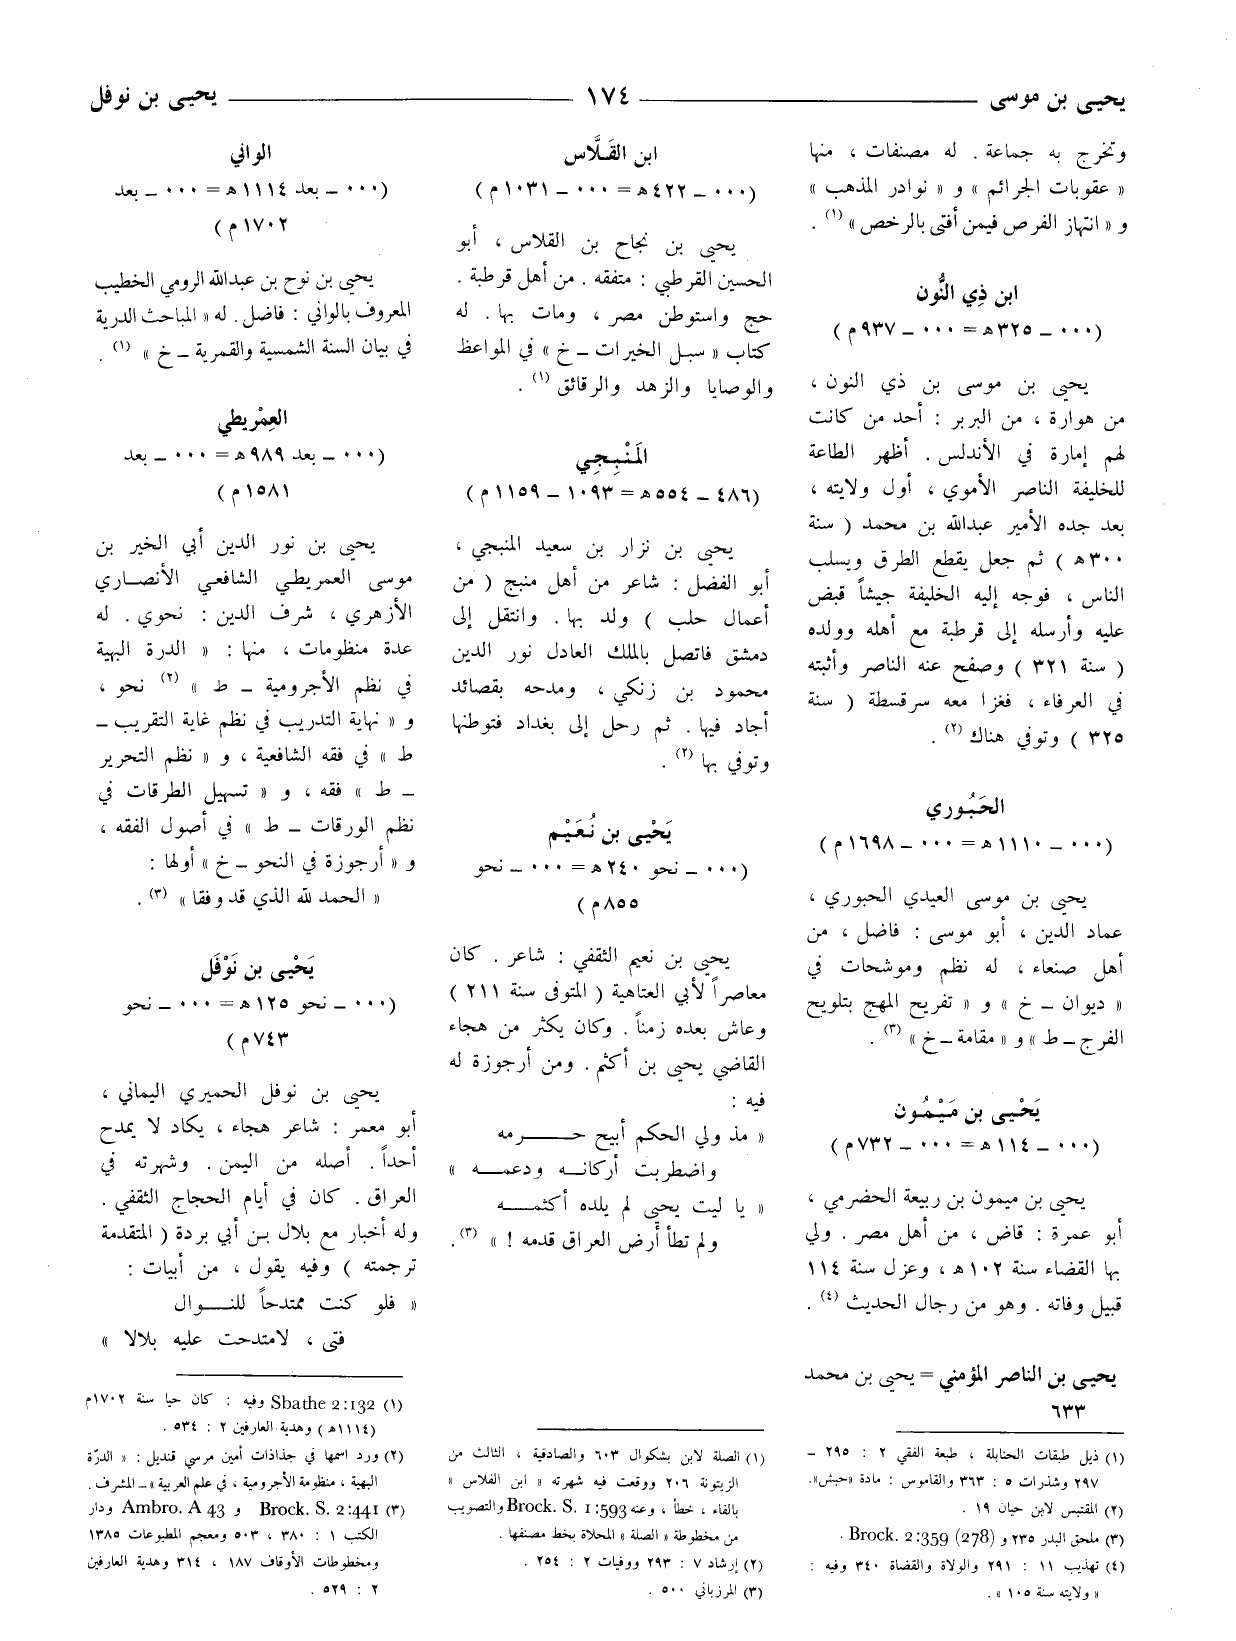 يحيى بن موسى ——— ١٧٤ ——— يحيى بن نوفل
وتخرج به جماعة . له مصنفات ، منها
« عقوبات الجرائم » و « نوادر المذهب »
و « انتهاز الفرص فيمن أفتى بالرخص » (١) .
ابن ذِي النُّون
(٠٠٠ ـ ٣٢٥ھ = ٠٠٠ ـ ٩٣٧ م)
يحيى بن موسى بن ذي النون ،
من هوارة ، من البربر : أحد من كانت
لهم إمارة في الأندلس . أظهر الطاعة
للخليفة الناصر الأموي ، أول ولايته ،
بعد جده الأمير عبدالله بن محمد ( سنة
٣٠٠ ھ ) ثم جعل يقطع الطرق ويسلب
الناس ، فوجه إليه الخليفة جيشاً قبض
عليه وأرسله إلى قرطبة مع أهله وولده
( سنة ٣٢١ ) وصفح عنه الناصر وأثبته
في العرفاء ، فغزا معه سرقسطة ( سنة
٣٢٥ ) وتوفي هناك (٢) .
الحَبُوري
(٠٠٠ ـ ١١١٠ ھ = ٠٠٠ ـ ١٦٩٨ م)
يحيى بن موسى العيدي الحبوري ،
عماد الدين ، أبو موسى : فاضل ، من
أهل صنعاء ، له نظم وموشحات في
« ديوان ـ خ » و « تفريح المهج بتلويح
الفرج ـ ط » و « مقامة ـ خ » (٣) .
يَحْيى بن مَيْمُون
(٠٠٠ ـ ١١٤ ھ = ٠٠٠ ـ ٧٣٢ م)
يحيى بن ميمون بن ربيعة الحضرمي ،
أبو عمرة : قاض ، من أهل مصر . ولي
بها القضاء سنة ١٠٢ ھ ، وعزل سنة ١١٤
قبيل وفاته . وهو من رجال الحديث (٤) .
يحيى بن الناصر المؤمني = يحيى بن محمد
٦٣٣
(١) ذيل طبقات الحنابلة ، طبعة الفقي ٢ : ٢٩٥ ـ
٢٩٧ وشذرات ٥ : ٣٦٣ والقاموس : مادة «حبش».
(٢) المقتبس لابن حيان ١٩ .
(٣) ملحق البدر ٢٣٥ و Brock. 2:359 (278) .
(٤) تهذيب ١١ : ٢٩١ والولاة والقضاة ٣٤٠ وفيه :
« ولايته سنة ١٠٥ » .
ابن القَلَّاس
(٠٠٠ ـ ٤٢٢ ھ = ٠٠٠ ـ ١٠٣١ م)
يحيى بن نجاح بن القلاس ، أبو
الحسين القرطبي : متفقه . من أهل قرطبة .
حج واستوطن مصر ، ومات بها . له
كتاب « سبل الخيرات ـ خ » في المواعظ
والوصايا والزهد والرقائق (١) .
المَنْبِجِي
(٤٨٦ ـ ٥٥٤ ھ = ١٠٩٣ ـ ١١٥٩ م)
يحيى بن نزار بن سعيد المنبجي ،
أبو الفضل : شاعر من أهل منبج ( من
أعمال حلب ) ولد بها . وانتقل إلى
دمشق فاتصل بالملك العادل نور الدين
محمود بن زنكي ، ومدحه بقصائد
أجاد فيها . ثم رحل إلى بغداد فتوطنها
وتوفي بها (٢) .
يَحْيى بن نُعَيْم
(٠٠٠ ـ نحو ٢٤٠ ھ = ٠٠٠ ـ نحو
٨٥٥ م)
يحيى بن نعيم الثقفي : شاعر . كان
معاصراً لأبي العتاهية ( المتوفى سنة ٢١١ )
وعاش بعده زمناً . وكان يكثر من هجاء
القاضي يحيى بن أكثم . ومن أرجوزة له
فيه :
« مذ ولي الحكم أبيح حـــرمه
واضطربت أركانــه ودعمــه »
« يا ليت يحيى لم يلده أكثمــه
ولم تطأ أرض العراق قدمه ! » (٣) .
(١) الصلة لابن بشكوال ٦٠٣ والصادقية ، الثالث من
الزيتونة ٢٠٦ ووقعت فيه شهرته « ابن الفلاس »
بالفاء ، خطأ ، وعنه Brock. S. 1:593 والتصويب
من مخطوطة « الصلة » المحلاة بخط مصنفها .
(٢) إرشاد ٧ : ٢٩٣ ووفيات ٢ : ٢٥٤ .
(٣) المرزباني ٥٠٠ .
الواني
(٠٠٠ ـ بعد ١١١٤ ھ = ٠٠٠ ـ بعد
١٧٠٢ م)
يحيى بن نوح بن عبدالله الرومي الخطيب
المعروف بالواني : فاضل . له « المباحث الدرية
في بيان السنة الشمسية والقمرية ـ خ » (١) .
العِمْريطي
(٠٠٠ ـ بعد ٩٨٩ ھ = ٠٠٠ ـ بعد
١٥٨١ م)
يحيى بن نور الدين أبي الخير بن
موسى العمريطي الشافعي الأنصاري
الأزهري ، شرف الدين : نحوي . له
عدة منظومات ، منها : « الدرة البهية
في نظم الأجرومية ـ ط » (٢) نحو ،
و « نهاية التدريب في نظم غاية التقريب ـ
ط » في فقه الشافعية ، و « نظم التحرير
ـ ط » فقه ، و « تسهيل الطرقات في
نظم الورقات ـ ط » في أصول الفقه ،
و « أرجوزة في النحو ـ خ » أولها :
« الحمد لله الذي قد وفقا » (٣) .
يَحْيى بن نَوْفَل
(٠٠٠ ـ نحو ١٢٥ ھ = ٠٠٠ ـ نحو
٧٤٣ م)
يحيى بن نوفل الحميري اليماني ،
أبو معمر : شاعر هجاء ، يكاد لا يمدح
أحداً . أصله من اليمن . وشهرته في
العراق . كان في أيام الحجاج الثقفي .
وله أخبار مع بلال بن أبي بردة ( المتقدمة
ترجمته ) وفيه يقول ، من أبيات :
« فلو كنت ممتدحاً للنـــوال
فتى ، لامتدحت عليه بلالا »
(١) Sbathe 2:132 وفيه : كان حيا سنة ١٧٠٢م
(١١١٤ھ) وهدية العارفين ٢ : ٥٣٤ .
(٢) ورد اسمها في جذاذات أمين مرسي قنديل : « الدرّة
البهية ، منظومة الأجرومية ، في علم العربية » ـ المشرف .
(٣) Brock. S. 2:441 و Ambro. A 43 ودار
الكتب ١ : ٣٨٠ ، ٥٠٣ ومعجم المطبوعات ١٣٨٥
ومخطوطات الأوقاف ١٨٧ ، ٣١٤ وهدية العارفين
٢ : ٥٢٩ .